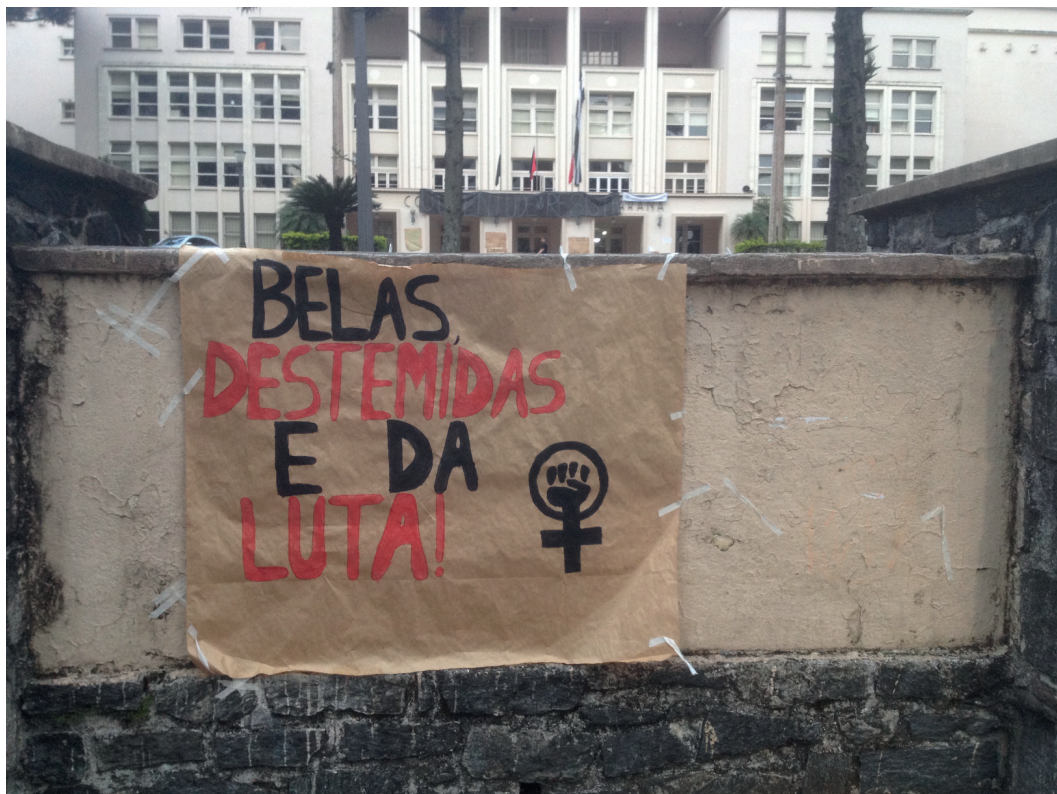 BELAS,
DESTEMIDAS
E DA
LUTA!